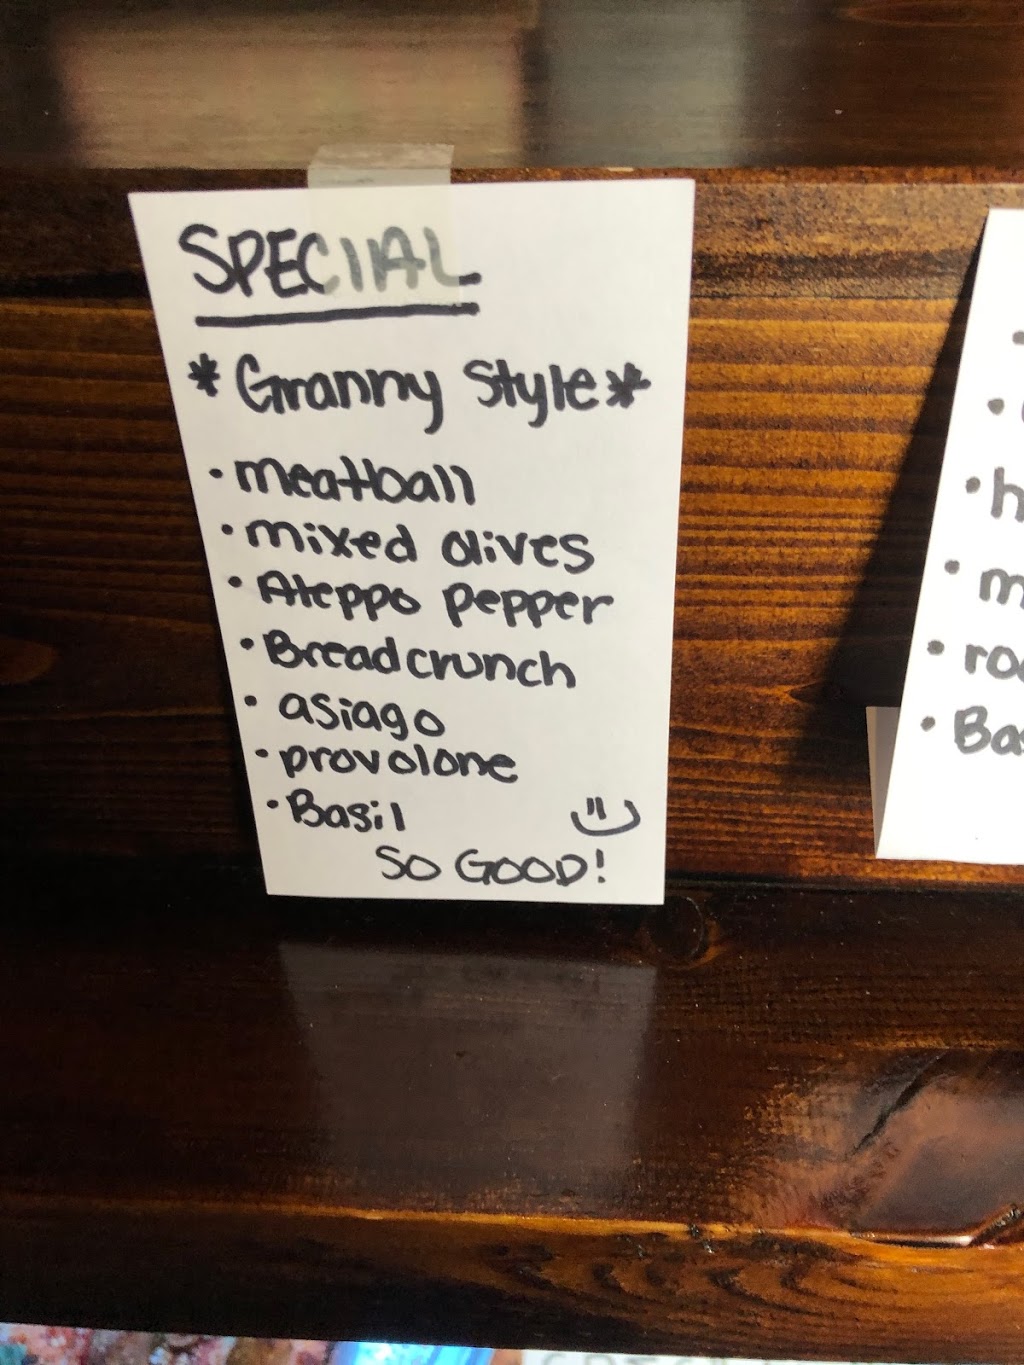 SPECIAL
*Granny Style*
• meatball
• mixed olives
• Aleppo pepper
• Bread crunch
• asiago
• provolone
• Basil
SO GOOD!